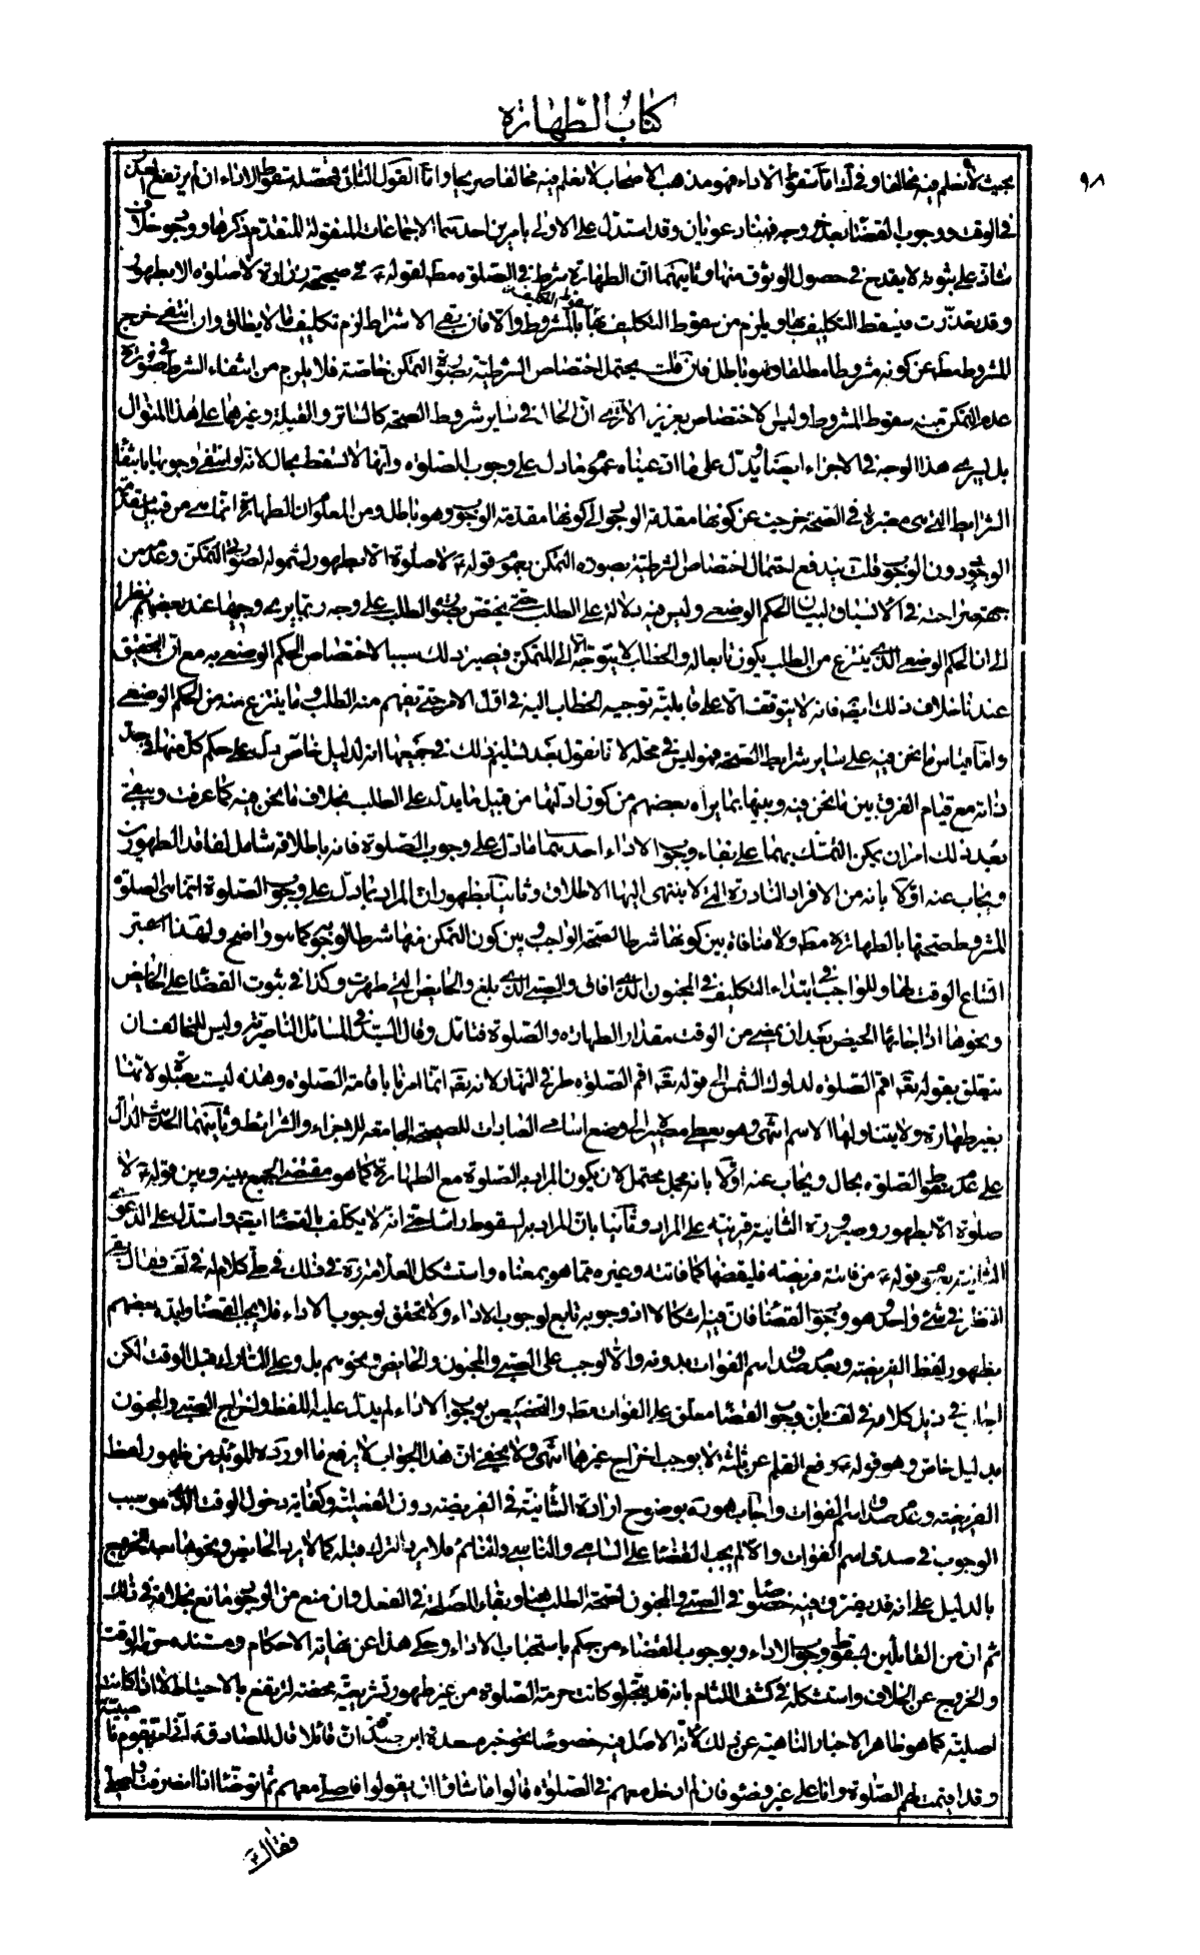 كتاب الطهارة
٩٨
بحيث لا نعلم فيه مخالفا وفى امّا سقوط الاداء فهو مذهب الاصحاب لا نعلم فيه مخالفا صريحا وامّا القول الثانى فمحصّله سقوط الاداء ان لم يرتفع العذر
فى الوقت ووجوب القضاء بعد خروجه فهنا دعويان وقد استدل على الاولى بامرين احدهما الاجماعات المنقولة المتقدم ذكرها ووجود خلاف
شاذ على ثبوته لا يقدح فى حصول الوثوق منها وثانيهما ان الطهارة شرط فى الصّلوة مط لقوله ع فى صحيحة زرارة لا صلوة الا بطهور
وقد تعذّرت فيسقط التكليف بها ويلزم من سقوط التكليف بها سقوط التكليف بالمشروط والّا فان بقى الاشتراط لزم تكليف ما لا يطاق وان انتفى خرج
المشروط مط عن كونه مشروطا مطلقا وهو باطل فان قلت يحتمل اختصاص الشرطيّة بصورة التمكن خاصّة فلا يلزم من انتفاء الشرط فى صورة
عدم التمكن منه سقوط المشروط وليس الاختصاص بعزيز الا ترى انّ الحال فى ساير شروط الصحّة كالساتر والقبلة وغيرهما على هذا المنوال
بل يسرى هذا الوجه فى الاجزاء ايضا ويدلّ على ما ادعيناه عموم ما دل على وجوب الصلوة وانّها لا تسقط بحال لانّه لو انتفى وجوبها بانتفاء
الشرايط التى هى معتبرة فى الصحّة خرجت عن كونها مقدمة الوجود الى كونها مقدمة الوجوب وهو باطل ومن المعلوم ان الطهارة انّما هى من قبيل مقدمة
الوجود دون الوجوب قلت يندفع احتمال اختصاص الشرطيّة بصورة التمكن بعموم قوله ع لا صلوة الّا بطهور لشموله لصورتى التمكن وعدمه من
جهة صراحته فى الانسياق لبيان الحكم الوضعى وليس فيه دلالة على الطلب حتى يختص بصورة الطلب على وجه ربّما يرى وجيها عند بعضهم نظرا
الى ان الحكم الوضعى الّذى ينتزع من الطلب يكون تابعا له والخطاب لا يتوجّه الّا الى المتمكن فيصير ذلك سببا لاختصاص الحكم الوضعى به مع انّ التحقيق
عندنا خلاف ذلك ايضا فانه لا يتوقف الّا على قابليّة توجيه الخطاب اليه فى اوّل الامر حتى يفهم منه الطلب وما ينتزع منه من الحكم الوضعى
وامّا قياس ما نحن فيه على ساير شرايط الصحّة فهو ليس فى محلّه لانّا نقول بعد تسليم ذلك فى جميعها انه لدليل خاصّ دلّ على حكم كلّ منها فى حد
ذاته مع قيام الفرق بين ما نحن فيه وبينها بما يراه بعضهم من كون ادلّتها من قبيل ما يدلّ على الطلب بخلاف ما نحن فيه كما عرفت وبقى
بعد ذلك امران يمكن التمسّك بهما على بقاء وجوب الاداء احدهما ما دلّ على وجوب الصّلوة فانه باطلاقه شامل لفاقد الطهورين
ويجاب عنه اوّلا بانه من الافراد النادرة التى لا ينتهى اليها الاطلاق وثانيا بظهور ان المراد بما دلّ على وجوب الصّلوة انّما هى الصلوة
المشروط صحتها بالطهارة مط ولا منافاة بين كونها شرطا لصحّة الواجب وبين كون التمكن منها شرطا لوجوبه كما هو واضح ولهذا اعتبر
اتّساع الوقت لها وللواجب فى ابتداء التكليف فى المجنون الّذى افاق والصبى الّذى بلغ والحايض التى طهرت وكذا فى ثبوت القضاء على الحايض
ونحوها اذا جائها الحيض بعد ان يمضى من الوقت مقدار الطهارة والصّلوة فتامّل وقال السيّد فى المسائل الناصرية وليس للمخالف ان
يتعلق بقوله تعه اقم الصّلوة لدلوك الشمس الى قوله تعه اقم الصلوة طرفى النهار لانه تعه انّما امرنا باقامة الصّلوة وهذه ليست بصلوة لانّها
بغير طهارة ولا يتناولها الاسم انتهى وهو يعطى مصيره الى وضع اسامى العبادات للصحيحة الجامعة للاجزاء والشرائط وثانيهما الحديث الدالّ
على عدم سقوط الصّلوة بحال ويجاب عنه اوّلا بانه مجمل محتمل لان يكون المراد به الصّلوة مع الطهارة كما هو مقتضى الجمع بينه وبين قوله ع لا
صلوة الّا بطهور وصيرورة الثانية قرينة على المراد وثانيا بان المراد به السقوط راسا حتى انه لا يكلّف بالقضاء ايضا واستدل على الدعوى
الثانية بعموم قوله ع من فاتته فريضة فليقضها كما فاتته وغيره ممّا هو بمعناه واستشكل العلّامة ره فى ذلك فى طىّ كلام له فى لف فقال بقى
النظر فى شىء واحد وهو وجوب القضاء فان فيه اشكالا اذ وجوبه تابع لوجوب الاداء ولا تحقق لوجوب الاداء فلا يجب القضاء وايده بعضهم
بظهور لفظ الفريضة وبعدم صدق اسم الفوات بدونه والّا لوجب على الصبى والمجنون والحايض ونحوهم بل وعلى التارك قبل الوقت لكن
اجاب فى ذيل كلامه فى لف بان وجوب القضاء معلّق على الفوات مط والتخصيص بوجوب الاداء لم يدلّ عليه اللفظ واخراج الصبى والمجنون
بدليل خاصّ وهو قوله ع رفع القلم عن ثلثة لا يوجب اخراج غيرهما انتهى ولا يخفى ان هذا الجواب لا يرفع ما اورده المؤيد من ظهور لفظ
الفريضة وعدم صدق اسم الفوات واجاب هو ره بوضوح ارادة الشانيّة فى الفريضة دون الفعليّة وكفاية دخول الوقت الّذى هو سبب
الوجوب فى صدق اسم الفوات والّا لم يجب القضاء على الساهى والناسى والنائم فلا يرد التارك قبله كما لا يرد الحايض ونحوها بعد الخروج
بالدليل على انه قد يفرق فيه خصوصا فى الصبى والمجنون لصحّة الطلب هنا وبقاء المصلحة فى الفعل وان منع من الوجوب مانع بخلافه فى ذلك
ثم ان من القائلين بسقوط وجوب الاداء وبوجوب القضاء من حكم باستحباب الاداء وحكى هذا عن نهاية الاحكام ومستنده حرمة الوقت
والخروج عن الخلاف واستشكله فى كشف اللثام بانه قد يتّجه لو كانت حرمة الصّلوة من غير طهور تشريعيّة محضة لترتفع بالاحتياط لا اذا كانت
اصليّة كما هو ظاهر الاخبار الناهية عن ذلك لانّه الاصل فيه خصوصا نحو خبر مسعدة ابن صدقة ان قائلا قال للصادق ع انّى امرّ بقوم ناصبيّة
وقد اقيمت لهم الصّلوة وانا على غير وضوء فان لم ادخل معهم فى الصّلوة قالوا ما شاؤا ان يقولوا فاصلّى معهم ثم اتوضّا اذا انصرفت واصلّى
فقال ع